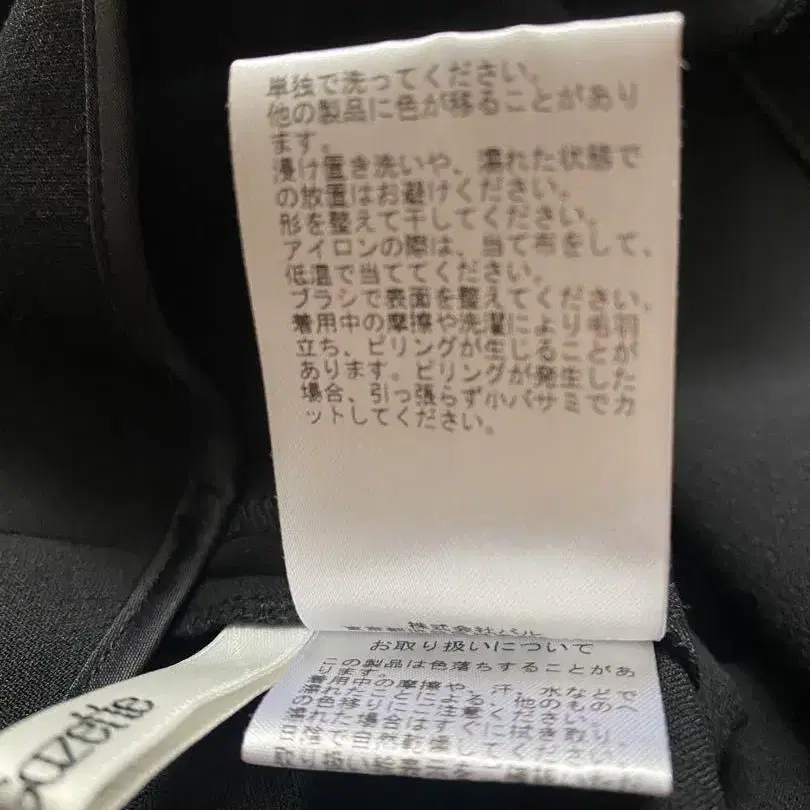 単独で洗ってください。
他の製品に色が移ることがあり
ます。
浸け置き洗いや、濡れた状態で
の放置はお避けください。
形を整えて干してください。
アイロンの際は、当て布をして、
低温で当ててください。
ブラシで表面を整えてください。
着用中の摩擦や洗濯により毛羽
立ち、ピリングが生じることが
あります。ピリングが発生した
場合、引っ張らず小バサミでカ
ットしてください。
株式会社パル
お取り扱いについて
この製品は色落ちすることがあ
ります。
着用中の摩擦や、汗、水などで
濡れたことによる、他のものへ
の色移りにご注意ください。
濡れた場合はすぐに拭き取り、
Gazette